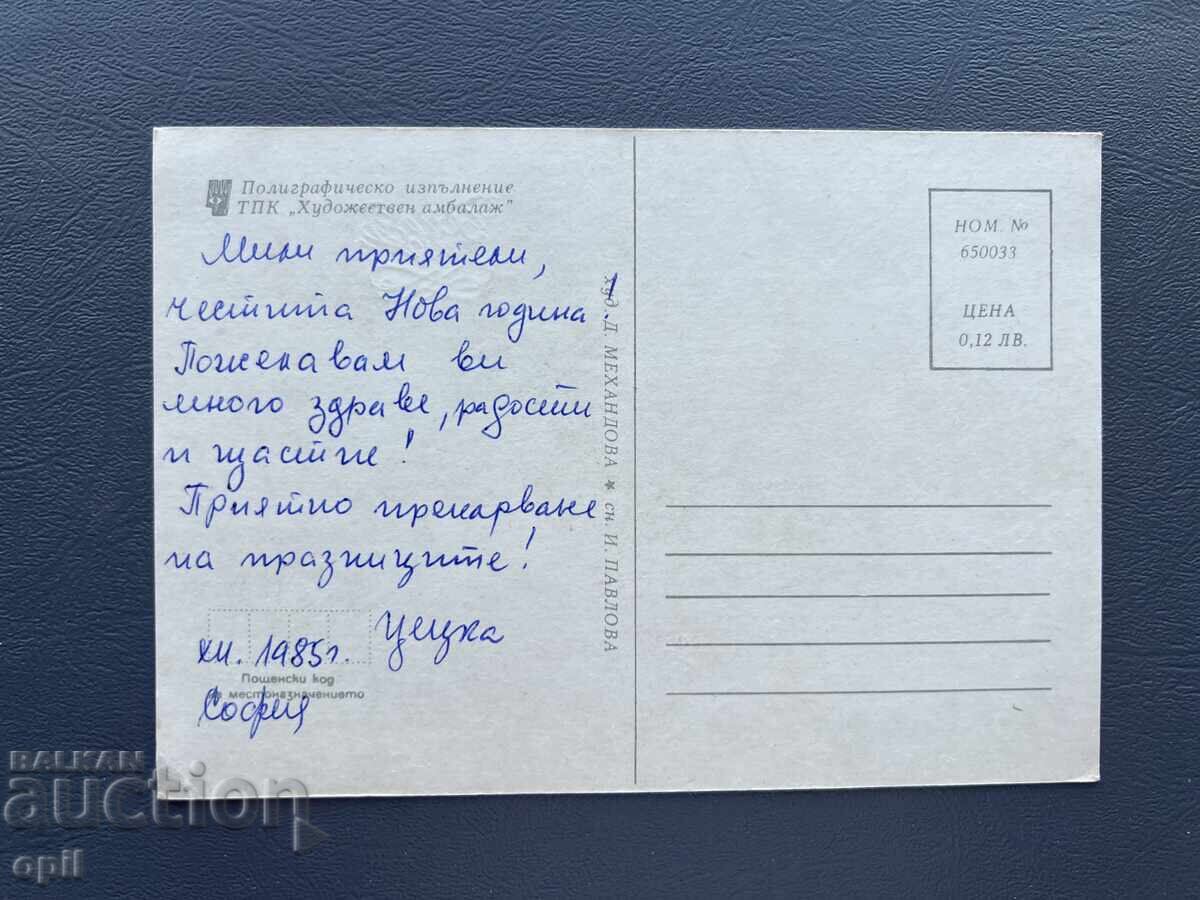 Полиграфическо изпълнение
ТПК „Художествен амбалаж"
Мили приятели,
честита Нова година!
Пожелавам ви
много здраве, радости
и щастие!
Приятно прекарване
на празниците!
Цецка
XII. 1985 г.
Пощенски код
на местоназначението
София
Худ. Д. МЕХАНДОВА * сн. И. ПАВЛОВА
НОМ. №
650033
ЦЕНА
0,12 ЛВ.
BALKAN
auction
opil